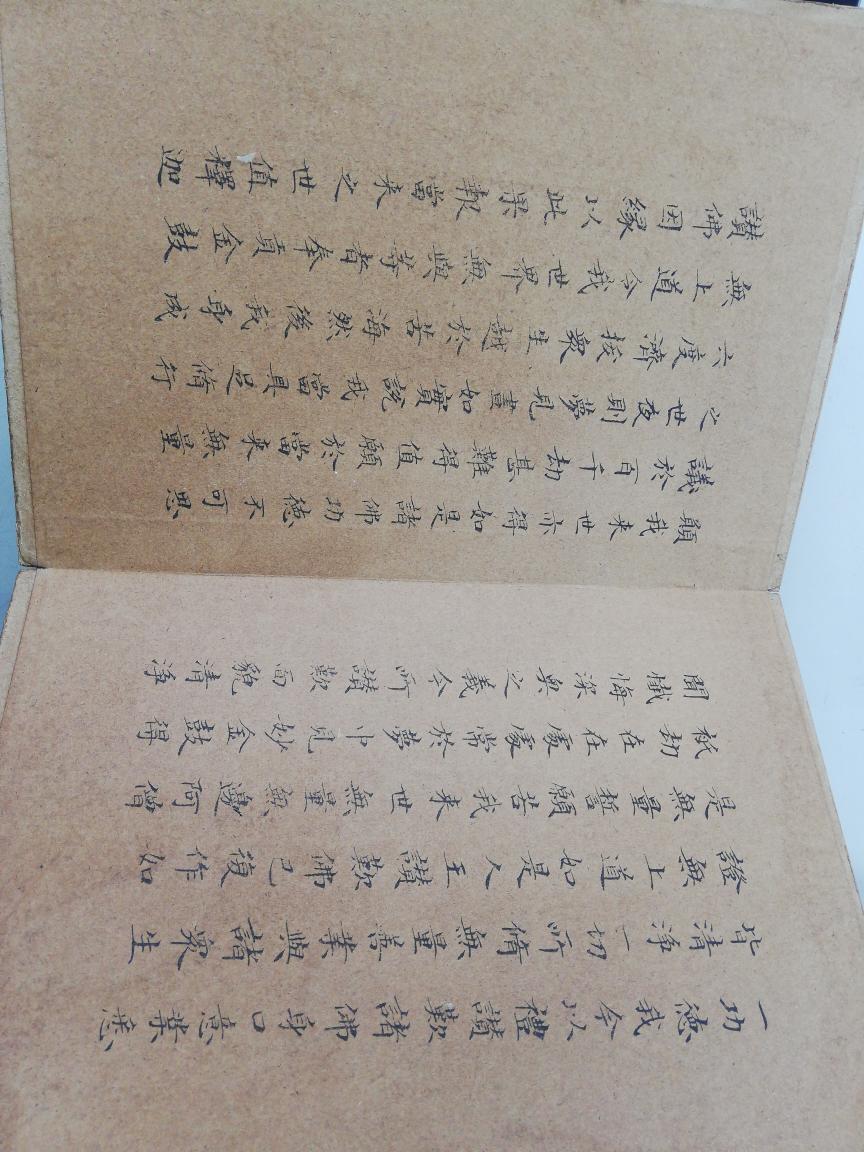 一功德我今以禮讃歎諸佛身口意業悉
皆清淨一切所脩無量善業與諸衆生
證無上道如是人王讃歎佛已復作如
是無量誓願若我来世無量無邊阿僧
祇劫在在處處常於夢中見妙金鼓得
聞懺悔深奥之義今所讃歎面貌清淨
願我来世亦得如是諸佛功德不可思
議於百千劫甚難得值願於當来無量
之世夜則夢見晝如實說我當具足脩行
六度濟拔衆生越於苦海然後我身成
無上道令我世界無與等者奉貢金鼓
讃佛因緣以此果報當来之世值釋迦